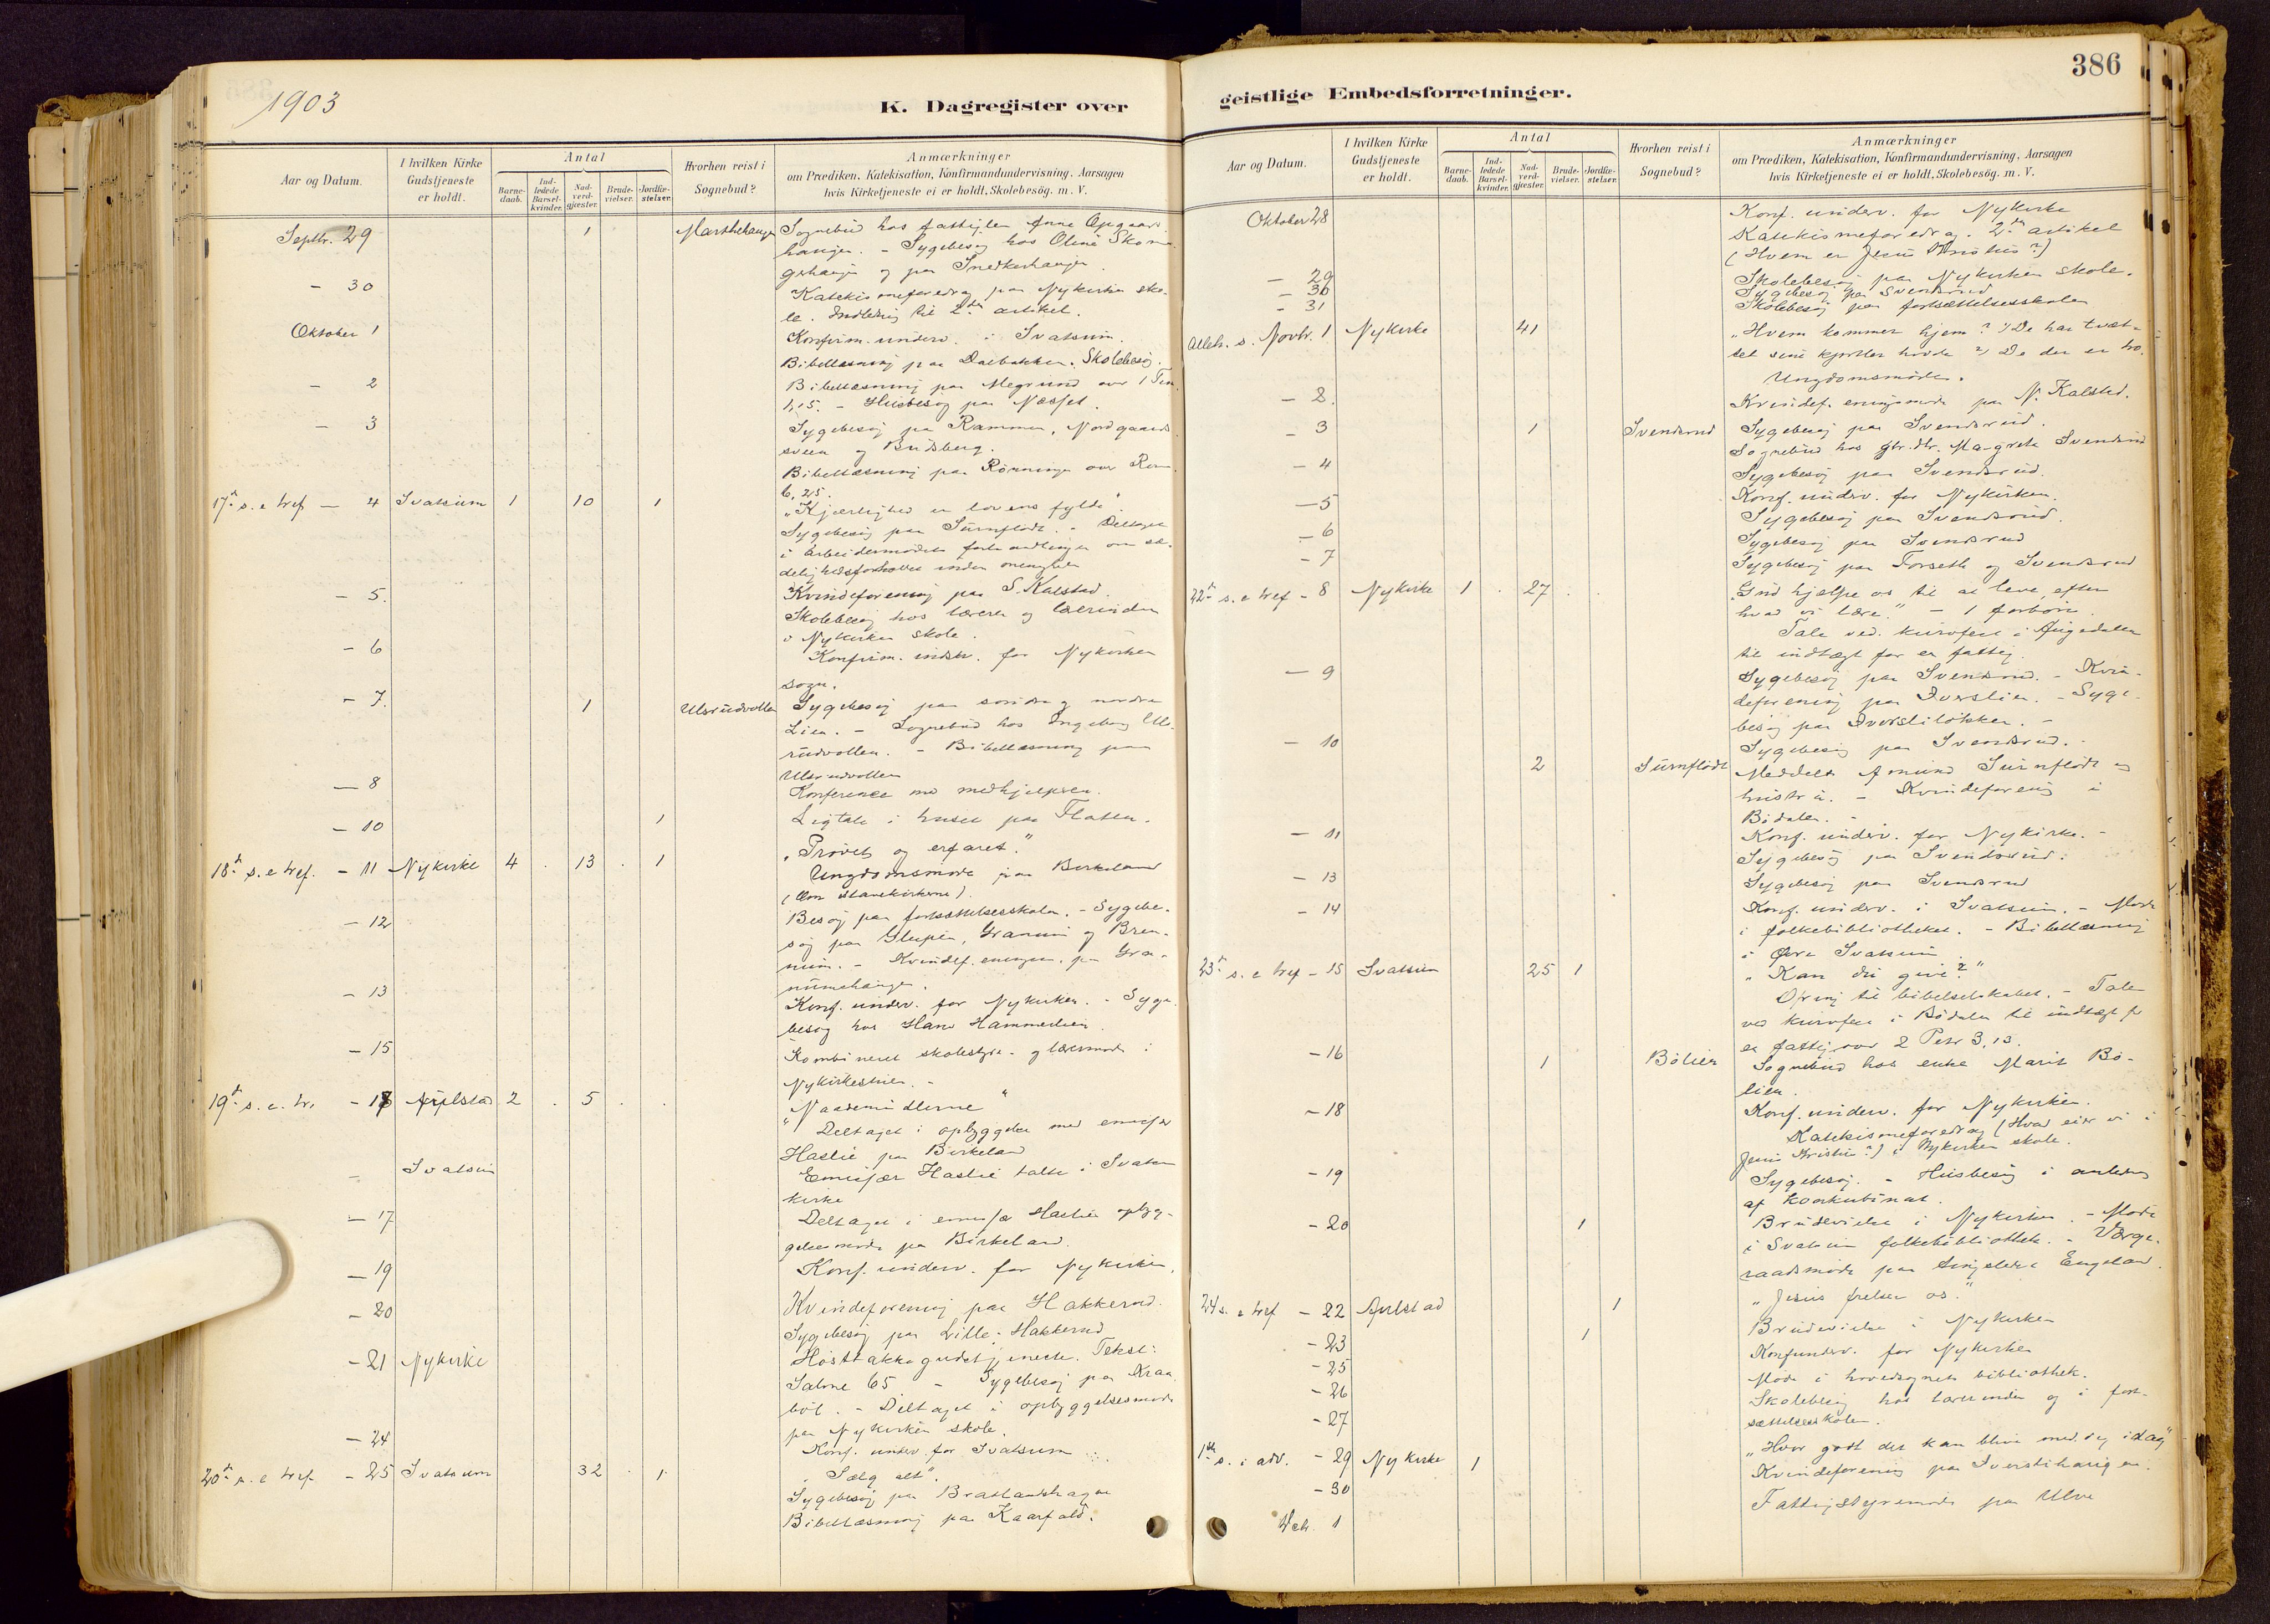 1903
K. Dagregister over
Aar og Datum.
I hvilken Kirke Gudstjeneste er holdt.
Antal
Barne-daab.
Ind-ledede Barsel-kvinder.
Nad-verd-gjæster.
Brude-vielser.
Jordfæ-stelser.
Hvorhen reist i Sognebud?
Anmærkninger
om Prædiken, Katekisation, Konfirmandundervisning, Aarsagen
hvis Kirketjeneste ei er holdt, Skolebesög. m. V.
Septbr. 29 1 Sognebud hos fattiglem Anne Opgaards
haugen. - Sygebesøg hos Oline
og paa Snedkerhaugen.
- 30 Katekismeforedrag paa Nykirken sko-
le. Indledning til 2den artikel.
Oktober 1 Konfirm. underv. i Svatsum.
Bibellæsning paa Dalbakken. Skolebesøg.
- 2 Bibellæsning paa Megrund over 1 Tim.
1,15. - Husbesøg paa Næsset.
- 3 Sygebesøg paa Rammen, Nordgaards
sveen og Budsberg.
Bibellæsning paa Rønningen over Rom.
6, 23.
17de s. e tref - 4 Svatsum 1 10 1 "Kjærlighed er lovens fylde"
Sygebesøg paa Surnflødt. - Deltaget
i arbeidermødets forhandlinger om sæ-
delighedsforholdet under
- 5. Kvindeforening paa S. Kalstad.
Skolebesøg hos læreren og lærerinden
i Nykirken skole.
- 6 Konfirm. underv. for Nykirken
sogn.
- 7. 1 Ulsrudvollen Sygebesøg paa søndre og nordre
Lien. - Sognebud hos Ingeborg Uls-
rudvollen. - Bibellæsning paa
Ulsrudvollen
- 8 Konference med medhjælperen.
- 10 1 Ligtale i huset paa Flaten.
18de s. e tref. - 11 Nykirke 4 . 13 . 1 "Prøvet og erfaret."
Ungdomsmøde paa Birkeland
(Om stavekirkerne).
- 12 Besøg paa fortsættelsesskolen. - Sygebe-
søg paa Glupen, Granum og Bren-
num. - Kvindef. eningen. paa Gra-
numshaugen.
- 13 Konf. underv. for Nykirken. - Syge-
besøg hos Hans Hammerlien.
- 15 Kombineret skolestyre- og lærermøde i
Nykirkestuen. -
19de s. e. tr. - 18 Aulstad 2 . 5 . . "Naademidlerne"
Deltaget i opbyggelse med emissær
Haslie paa Birkeland
- Svatsum Emissær Haslie talte i Svatsum
kirke
- 17 Deltaget i emissær Haslies opbyg-
gelsesmøde paa Birkeland.
- 19 Konf. underv. for Nykirken.
- 20 Kvindeforening paa Hakkerud.
Sygebesøg paa Lille-Hakkerud
- 21 Nykirke Høsttakkegudstjeneste. Tekst:
Salme 65. - Sygebesøg paa Kraa
bøl. - Deltaget i opbyggelsesmøde
paa Nykirken skole.
- 24 Konf. underv. for Svatsum
20de s. e tref - 25 Svatsum 32 . 1. "Sælg alt".
Sygebesøg paa Bratlandshagen
Bibellæsning paa Kaarfald.
386
geistlige Embedsforretninger.
Aar og Datum.
I hvilken Kirke Gudstjeneste er holdt.
Antal
Barne-daab.
Ind-ledede Barsel-kvinder.
Nad-verd-gjæster.
Brude-vielser.
Jordfæ-stelser.
Hvorhen reist i Sognebud?
Anmærkninger
om Prædiken, Katekisation, Konfirmandundervisning, Aarsagen
hvis Kirketjeneste ei er holdt, Skolebesög. m. V.
Oktober 28 Konf. underv. for Nykirke
Katekismeforedrag. 2den artikel
(Hvem er Jesus Kristus?)
- 29 Skolebesøg paa Nykirken skole.
- 30 Sygebesøg paa Svendsrud
- 31 Skolebesøg paa fortsættelsesskolen
Alleh. s. Novbr. 1 Nykirke 41 "Hvem kommer hjem? 1) De har tvæt-
tet sine kjortler hvide 2) De der er tro.
Ungdomsmøde.
- 2. Kvindef. eningsmøde paa N. Kalstad.
- 3 1 Svendsrud Sygebesøg paa Svendsrud.
Sognebud hos gbr.dtr. Margrete Svendsrud
- 4 Sygebesøg paa Svendsrud.
Konf. underv. for Nykirken.
- 5 Sygebesøg paa Svendsrud.
- 6 Sygebesøg paa Svendsrud
- 7 Sygebesøg paa Forseth og Svendsrud
22de s. e tref - 8 Nykirke 1 . 27 . . "Gud hjælpe os til at leve efter
hvad vi lære." - 1 forbøn.
Tale ved kurvfest i Augedalen
til indtægt for en fattig.
- 9 Sygebesøg paa Svendsrud. - Kvin-
deforening paa Iverslien. - Syge-
besøg paa Iversliløkken. -
- 10 Sygebesøg paa Svendsrud. -
2 Surnflødt Meddelt Amund Surnflødt og
hustru. - Kvindeforening i
Bødalen. -
- 11 Konf. underv. for Nykirke. -
Sygebesøg paa Svendsrud.
- 13 Sygebesøg paa Svendsrud
- 14 Konf. underv. i Svatsum. - Møde
i folkebibliotheket. - Bibellæsning
i Øvre Svatsum
23de s. e tref - 15 Svatsum 25 1 "Kan du give?"
Ofring til bibelselskabet. - Tale
ved kurvfest i Bødalen til indtægt f
en fattig over 2 Petr 3, 13.
- 16 1 Bølien Sognebud hos enke Marit Bø-
lien.
- 18 Konf. underv. for Nykirken.
Katekismeforedrag (Hvad eier vi i
Jesus Kristus?) i Nykirken skole.
- 19 Sygebesøg. - Husbesøg i anledn
af konkubinat.
- 20 1 Brudevielse i Nykirken. - Møde
i Svatsum folkebibliothek. - Værge-
raadsmøde paa Engeland.
24 s. e tref - 22 Aulstad 1 "Jesus frelser os."
- 23 1 Brudevielse i Nykirken
- 25 Konfunderv. for Nykirken
- 26 Møde i hovedsognets bibliothek.
- 27 Skolebesøg hos lærerinden og i fort-
sættelsesskolen.
1ste s. i adv. - 29 Nykirke 1 "Hvor godt det kan blive med dig idag"
- 30 Kvindeforening paa Iverslihaugen.
Dcb. 1 Fattigstyremøde paa Ulve